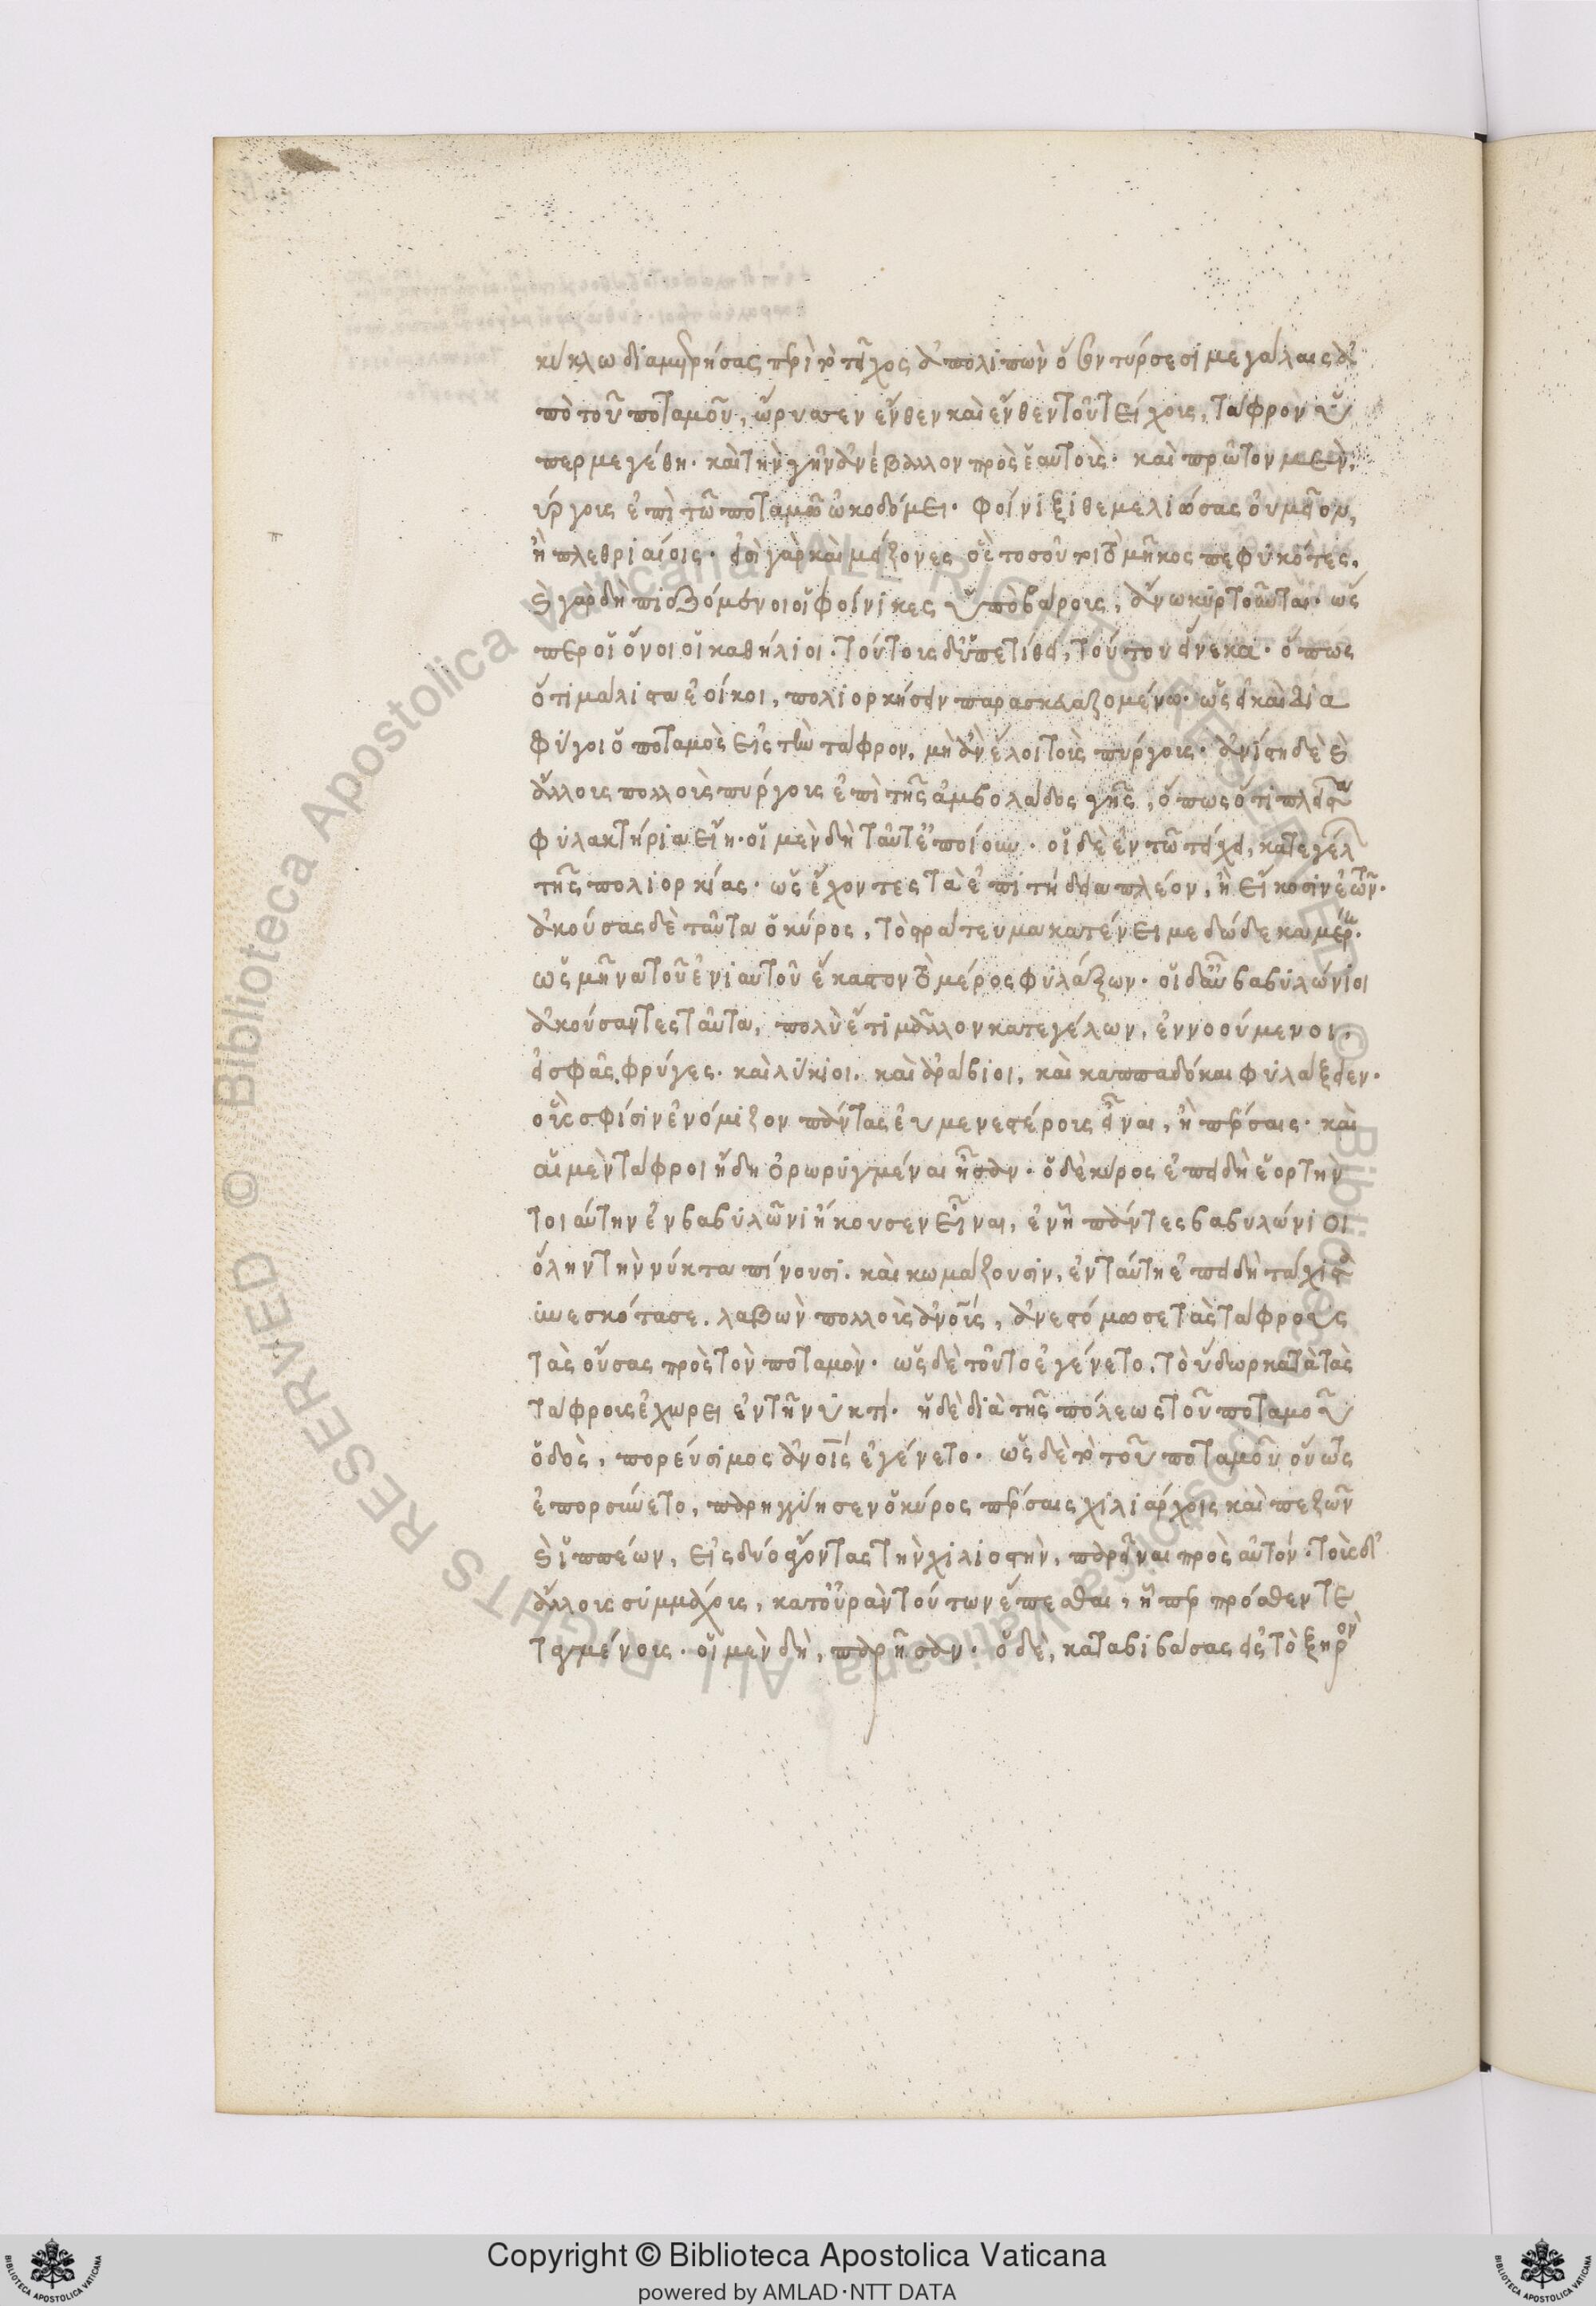 κύκλω διαμετρήσας περὶ τὸ τεῖχος ἀπολιπὼν ὅσον τύρσεσι μεγάλαις ἀ
πὸ τοῦ ποταμοῦ, ὤρυσσεν ἔνθεν καὶ ἔνθεν τοῦ τείχους, τάφρον ὑ
περμεγέθη. καὶ τὴν γῆν ἀνέβαλλον πρὸς ἑαυτούς. καὶ πρῶτον μὲν
πύργους ἐπὶ τῶ ποταμῶ ὠκοδόμει. φοίνιξι θεμελιώσας οὐ μεῖον,
ἢ πλεθριαίοις. εἰσὶ γὰρ καὶ μείζονες ἢ τοσοῦτοι τὸ μῆκος πεφυκότες,
καὶ γὰρ δὴ πιεζόμενοι οἱ φοίνικες ὑπὸ βάρους, ἄνω κυρτοῦνται. ὥς
περ οἱ ὄνοι οἱ κανθήλιοι. τούτους δ' ὑπετίθει, τούτου ἕνεκα. ὅπως
ὅτι μάλιστα ἐοίκοι, πολιορκήσειν παρασκευαζομένω. ὡς εἰ καὶ δια
φύγοι ὁ ποταμὸς εἰς τὴν τάφρον, μὴ ἀνέλοι τοὺς πύργους. ἀνίστη δὲ καὶ
ἄλλους πολλοὺς πύργους ἐπὶ τῆς ἀμβολάδος γῆς, ὅπως ὅτι πλεῖστα
φυλακτήρια εἴη. οἱ μὲν δὴ ταῦτ' ἐποίουν. οἱ δὲ ἐν τῶ τείχει, κατεγέλ
τῆς πολιορκίας. ὡς ἔχοντες τὰ ἐπιτήδεια πλέον, ἢ εἴκοσιν ἐτῶν.
ἀκούσας δὲ ταῦτα ὁ κύρος, τὸ στράτευμα κατένειμε δώδεκα μέρη.
ὡς μῆνα τοῦ ἐνιαυτοῦ ἕκαστον τὸ μέρος φυλάξων. οἱ δ' αὖ βαβυλώνιοι
ἀκούσαντες ταῦτα, πολὺ ἔτι μᾶλλον κατεγέλων, ἐννοούμενοι,
εἰ σφᾶς φρύγες. καὶ λύκιοι. καὶ ἀράβιοι, καὶ καππαδόκαι φυλάξειεν.
οὓς σφίσιν ἐνόμιζον πάντας εὐμενεστέρους εἶναι, ἢ πέρσαις. καὶ
αἱ μὲν τάφροι ἤδη ὀρωρυγμέναι ἦσαν. ὁ δὲ κύρος ἐπειδὴ ἑορτὴν
τοιαύτην ἐν βαβυλῶνι ἤκουσεν εἶναι, ἐν ἧ πάντες βαβυλώνιοι
ὅλην τὴν νύκτα πίνουσι. καὶ κωμάζουσιν, ἐν ταύτη ἐπειδὴ τάχιστα
συνεσκότασε. λαβὼν πολλοὺς ἀνους, ἀνεστόμωσε τὰς τάφρους
τὰς οὔσας πρὸς τὸν ποταμὸν. ὡς δὲ τοῦτο ἐγένετο, τὸ ὕδωρ κατὰ τὰς
τάφρους ἐχώρει ἐν τῆ νυκτί. ἡ δὲ διὰ τῆς πόλεως τοῦ ποταμοῦ
ὁδὸς, πορεύσιμος ἀνοις ἐγένετο. ὡς δὲ τὸ τοῦ ποταμοῦ οὕτως
ἐπορσύνετο, παρηγγύησεν ὁ κύρος πέρσαις χιλιάρχοις καὶ πεζῶν
καὶ ἱππέων, εἰς δύο ἄγοντας τὴν χιλιοστὴν, παρεῖναι πρὸς αὐτόν. τοὺς δ'
ἄλλους συμμάχους, κατ' οὐρὰν τούτων ἕπεσθαι, ἧπερ πρόσθεν τε
ταγμένους. οἱ μὲν δὴ, παρῆσαν. ὁ δὲ, καταβιβάσας εἰς τὸ ξηρὸν
Copyright © Biblioteca Apostolica Vaticana
powered by AMLAD·NTT DATA